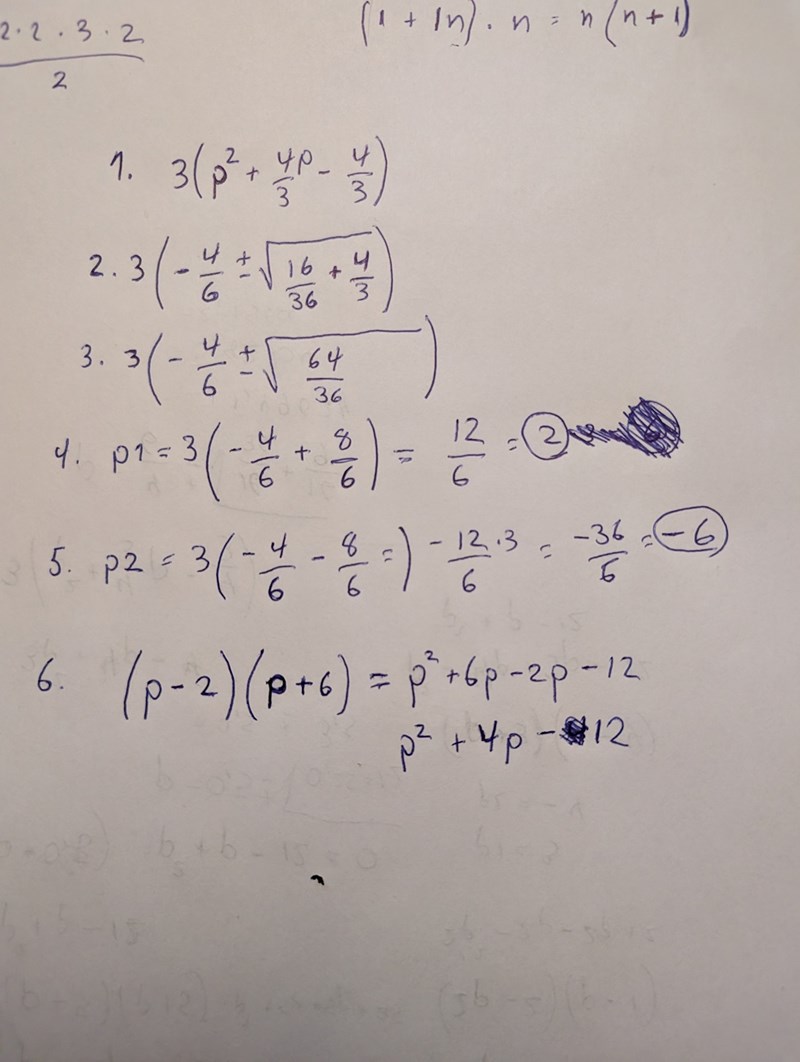 2·2·3·2
2
(1 + 1n) · n = n(n+1)
1. 3(p² + 4p/3 - 4/3)
2. 3(-4/6 ± √(16/36 + 4/3))
3. 3(-4/6 ± √(64/36))
4. p1 = 3(-4/6 + 8/6) = 12/6 = 2
5. p2 = 3(-4/6 - 8/6 =) -12·3/6 = -36/6 = -6
6. (p-2)(p+6) = p² + 6p - 2p - 12
p² + 4p - 12